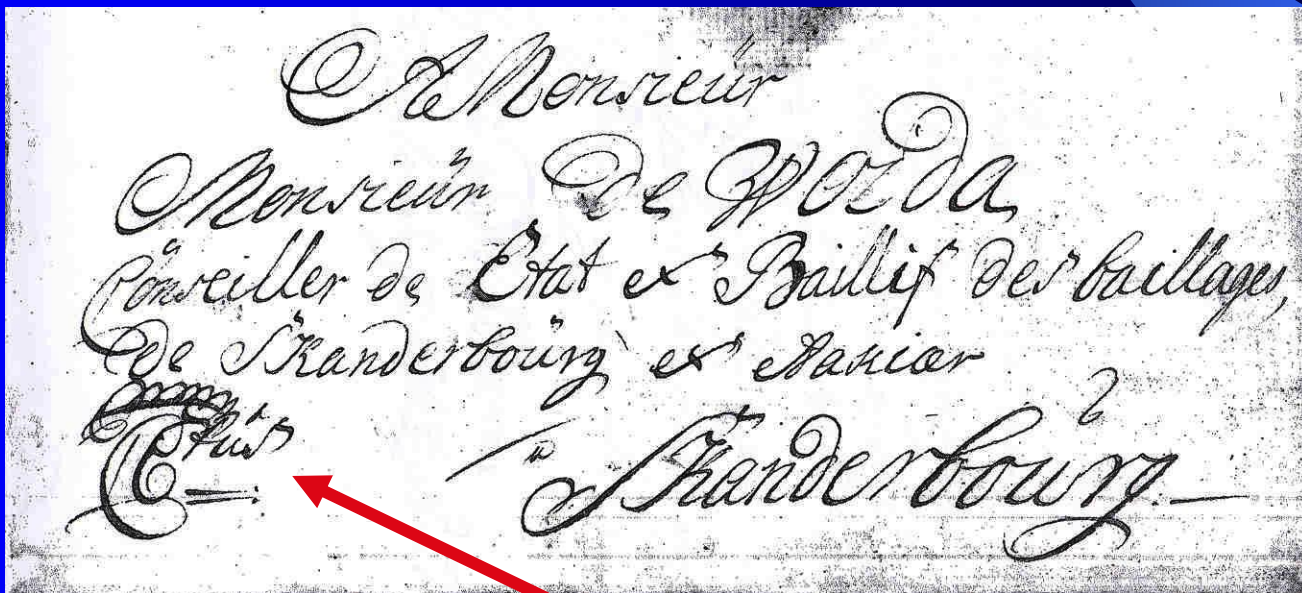 A Monsieur
Monsieur de Worda
Conseiller de Etat et Baillif des bailliages,
de Skanderbourg et Aakiær
a Skanderbourg